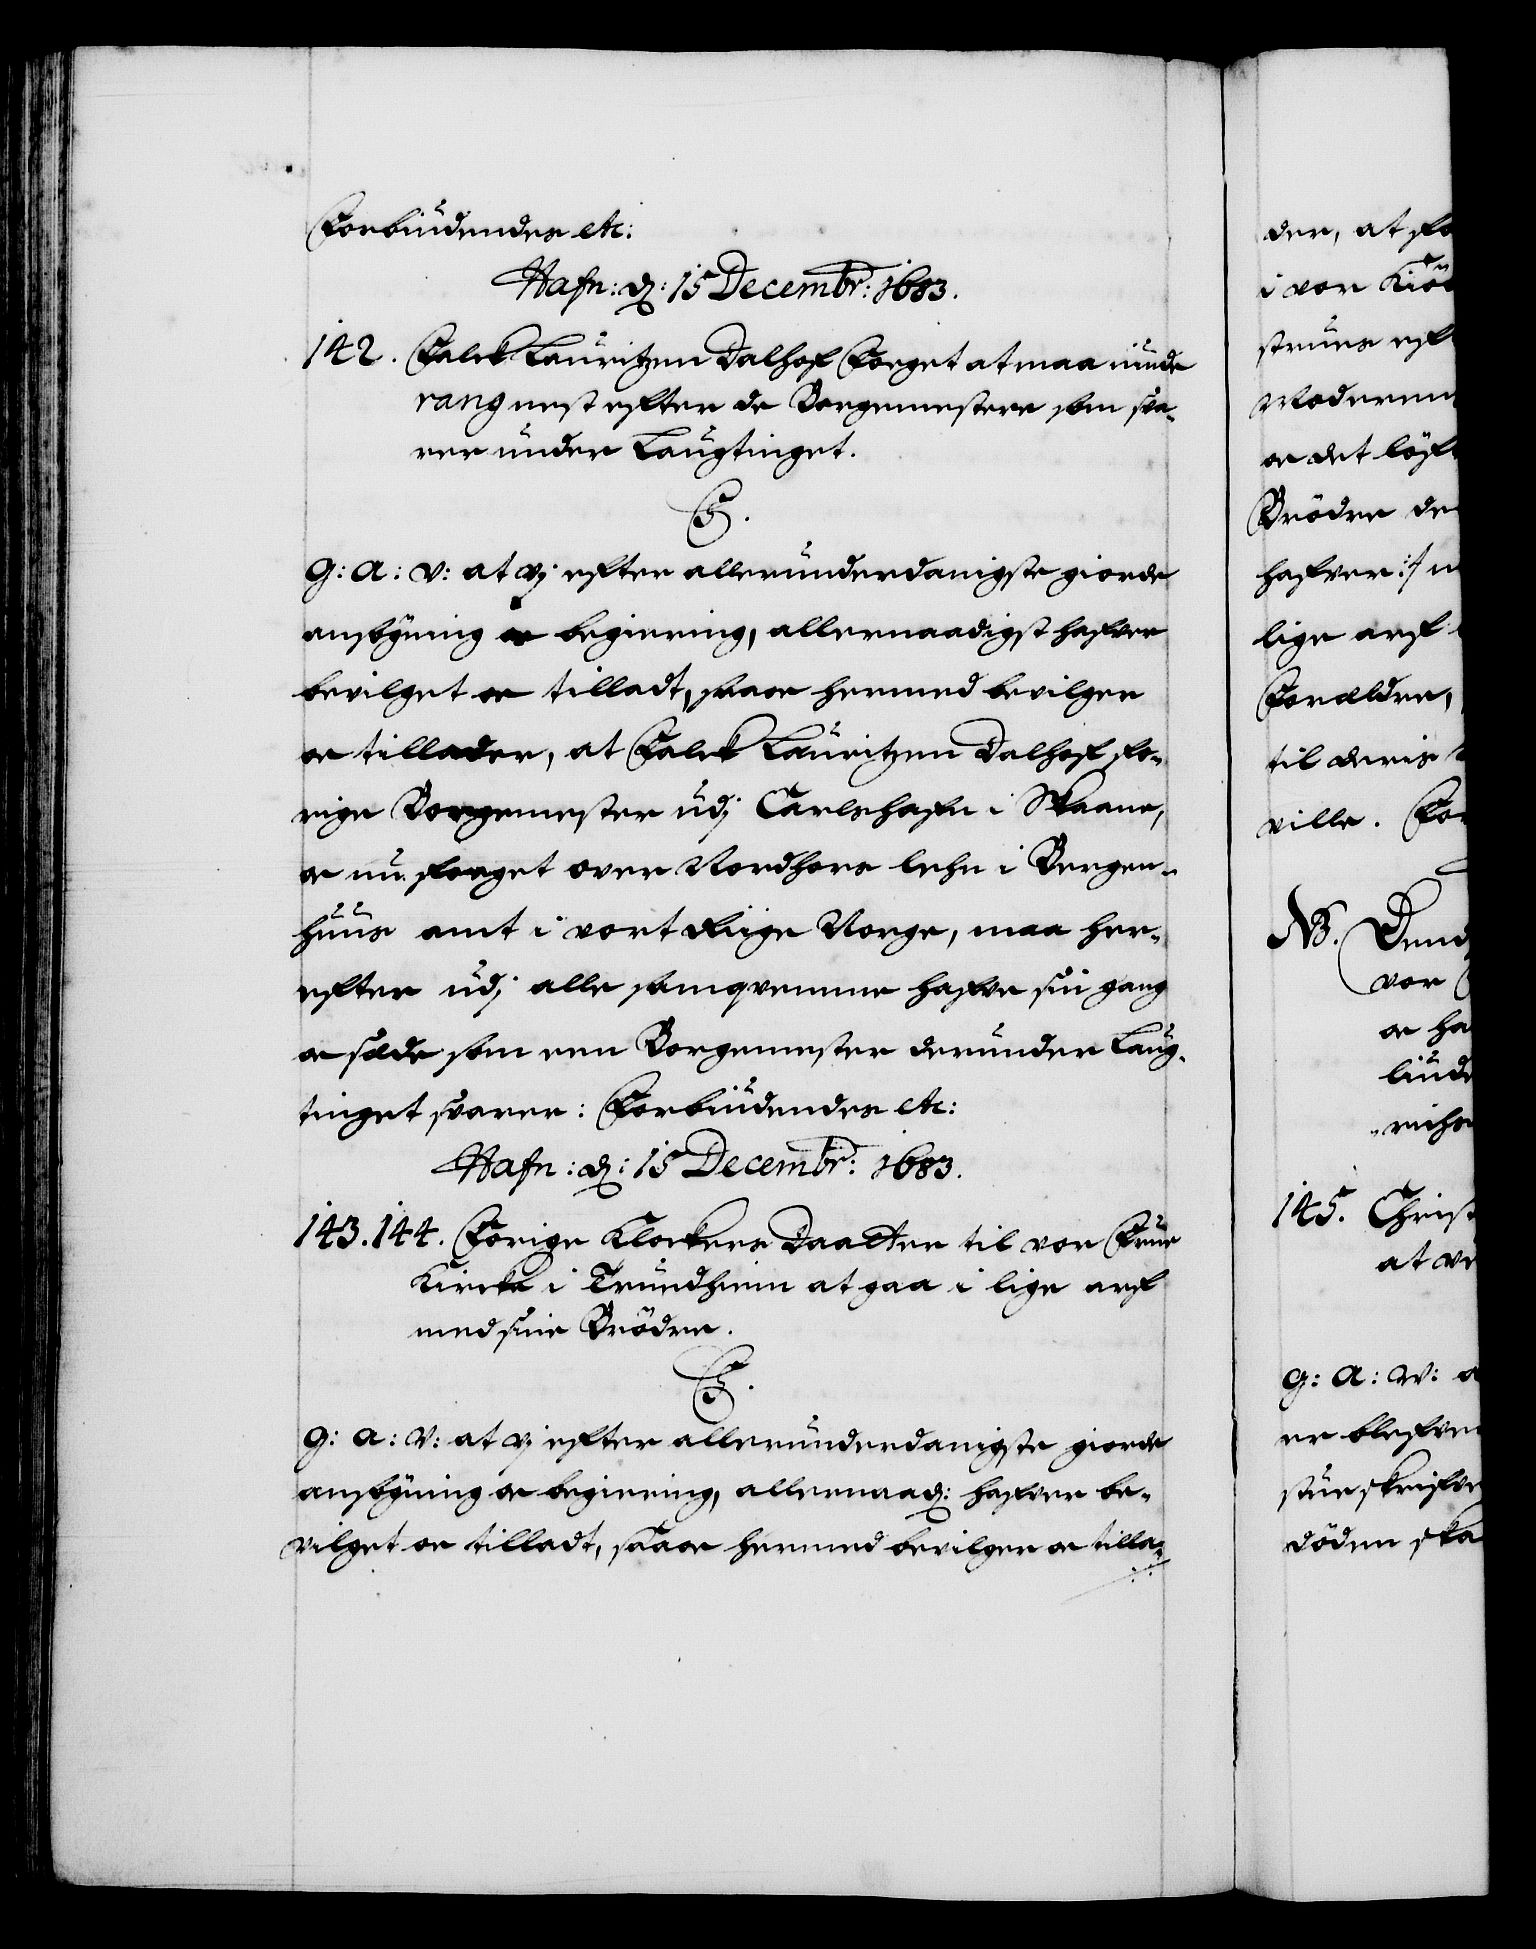 Forbiudendes etc:
Hafn: d: 15 Decembr: 1683.
142. Falck Lauritzen Dalhof Foeget at maa niude
rang nest efter de Borgemestere som sva-
rer under Laugtinget.
C5.
G: A: V: at vj efter allerunderdanigste giorde
ansøgning oc begiering, allernaadigst hafver
bevilget oc tilladt, saa oc hermed bevilger
oc tillader, at Falck Lauritzen Dalhof fo-
rige Borgemester udj Carlshafn i Skaane,
oc nu foeget over Nordhors lehn i Bergen-
huus amt i vort Riige Norge, maa her-
efter udj alle samqvemme hafve sin gang
oc sæde som een Borgemester der under Laug-
tinget svarer: Forbiudendes etc:
Hafn: d: 15 Decembr: 1683.
143. 144. Forige Klockers Daatter til vor Frue
Kircke i Trundhiem at gaa i lige arf
med sine Brödre.
C5.
G: A: V: at vj efter allerunderdanigste giorde
ansøgning oc begiering, allernaad: hafver be-
vilget oc tilladt, saa oc hermed bevilger oc tilla-
der, at
i vor Kiöb
efter
Moderen
oc det
Brödre
hafver
lige arf
Forældre,
til deris
ville. For
NB. Dend
vor
oc ha
145. Christ
at
G: A: V: a
er blefven
döden ska